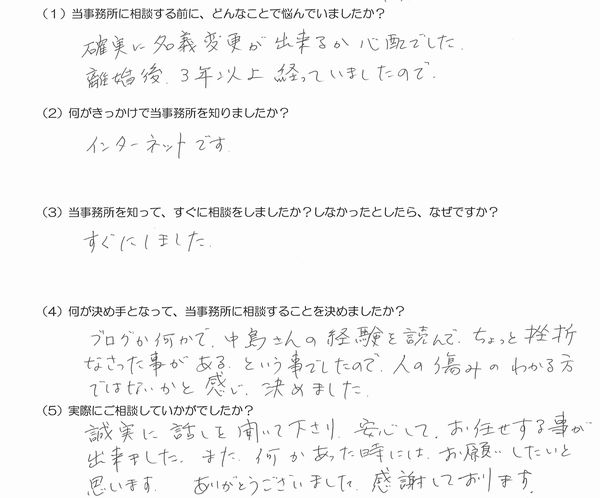 （1）当事務所に相談する前に、どんなことで悩んでいましたか？
確実に名義変更が出来るか心配でした.
離婚後、3年以上経っていましたので.
（2）何がきっかけで当事務所を知りましたか？
インターネットです.
（3）当事務所を知って、すぐに相談をしましたか？しなかったとしたら、なぜですか？
すぐにしました.
（4）何が決め手となって、当事務所に相談することを決めましたか？
ブログか何かで、中島さんの経験を読んで、ちょっと挫折
なさった事がある、という事でしたので、人の傷みのわかる方
ではないかと感じ、決めました.
（5）実際にご相談していかがでしたか？
誠実に話しを聞いて下さり、安心して、お任せする事が
出来ました. また、何かあった時には、お願いしたいと
思います. ありがとうございました. 感謝しております.